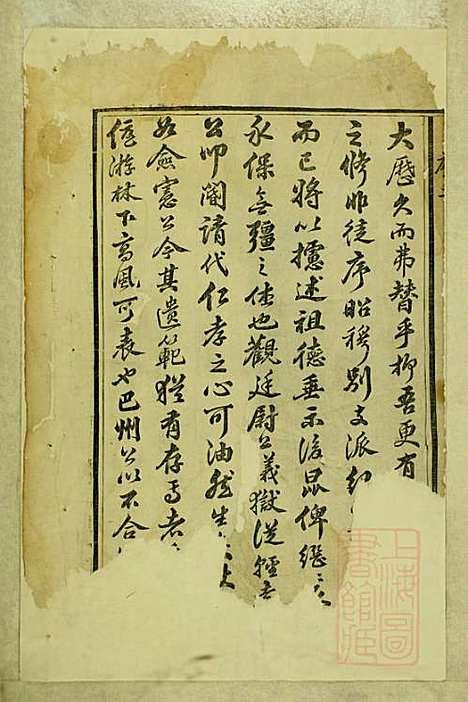 大歷久而弗替乎抑吾更有
之脩非徒序昭穆別支派紀
而已將以攄述祖德垂示後昆俾繼
永保無疆之休也觀廷尉公義獄從輕
公叩閽請代仁孝之心可油然生
公令其遺範猶有存焉者
游林下高風可表也巴州公以不合
上海圖書館藏